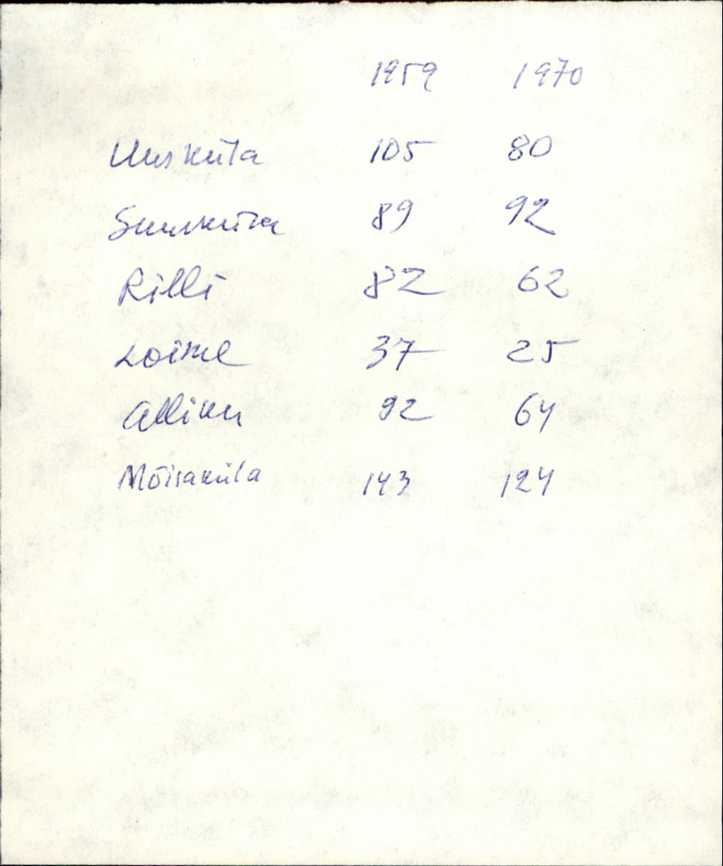 1959 1970
Uusküla 105 80
Suurküla 89 92
Rilli 82 62
Loime 37 25
Alliku 92 64
Mõisaküla 143 124